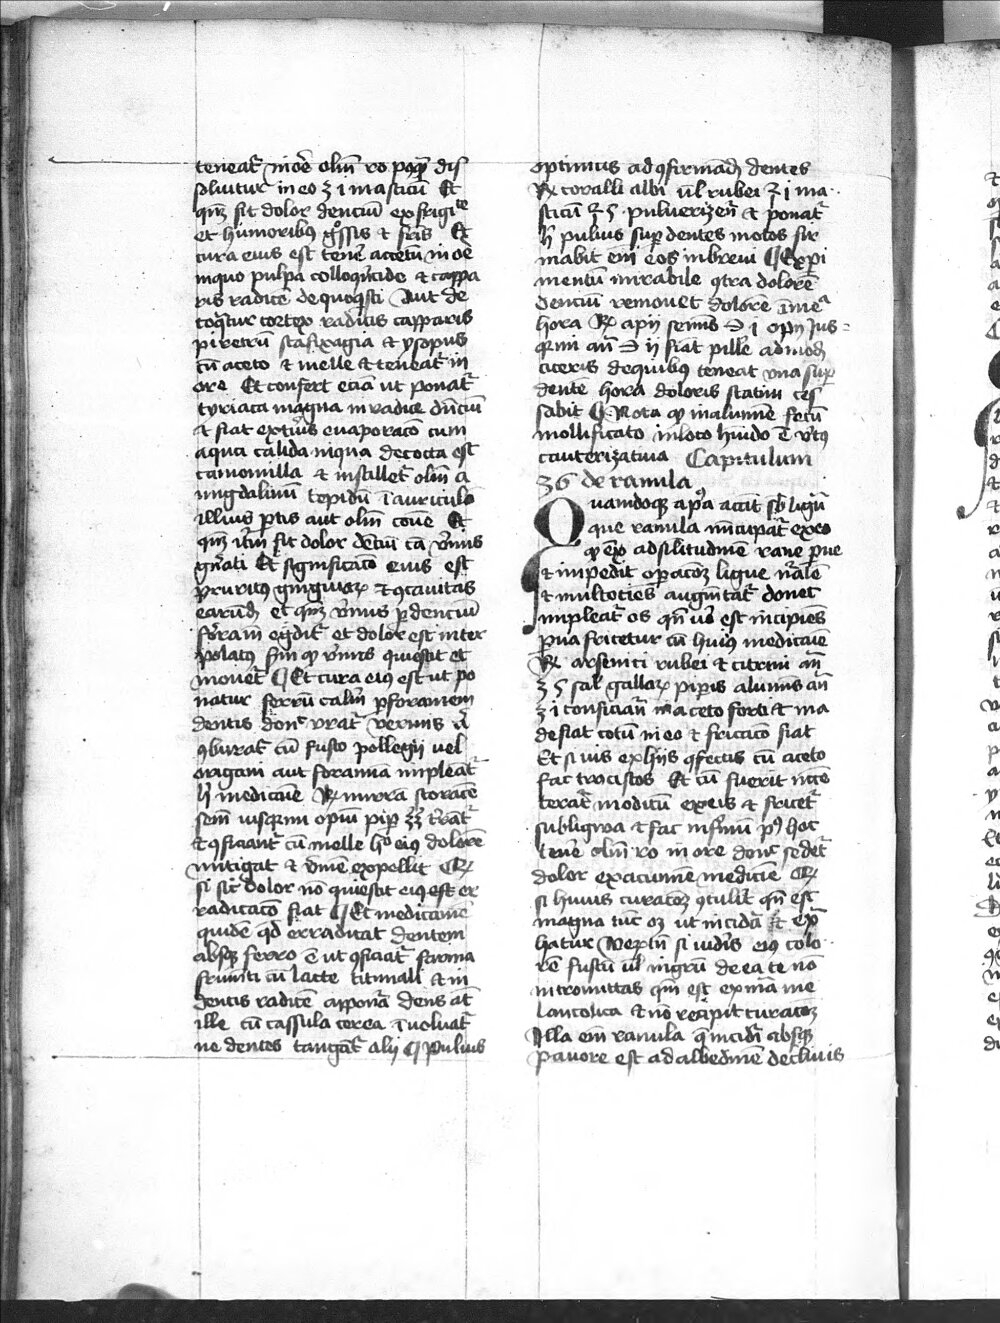 teneat᷑ in oe᷑ oleū ro postq̄ dis
soluitur in eo ʒ i masticū Et
qn̄q sit dolor denciū ex frigitᵗᵉ
et humoribus g͛ssis et fr̄is Et
cura eius est tener̄ acetū in oē
inquo pulpa colloq̄ntide et cappa
ris radice de quoq̄sti Aut de
coq̄tur cortex radicis capparis
piretrū stafixagia et ysopus
cū aceto et melle et teneat᷑ in
ore Et confert eciā ut ponat᷑
tyriaca magna in radice dn̄ciū
et fiat ext͛us euaporacō cum
aqua calida in qua decocta est
camomilla et instillet᷑ oleū a
migdalinū tepidū ī auriculā
illius p̄tis aut oleū cōue Et
qn̄q it͛m fit dolor dēciū cā v͛mis
gn̄ati Et significacō eius est
pruritus gingiuaꝝ et ꝯcauitas
earūdē et qn̄q v͛mis p̄ denciū
foram̄ egdit᷑ et dolor est inter
polatus scd̄m ꝙ v͛mis quiescit et
mouet᷑ ¶ Et cura eius est ut po
natur ferrū calid̄ī p̄ foramen
dentis donc̄ vrat᷑ vermis
ꝯburat᷑ cū fusto pollegij uel
origani aut foramia impleāt᷑
hijs medicine ℞ mirra storacē
sem̄ iusq̄ami opiū pip̄ ʒʒ t͛rat᷑
et ꝯficiant᷑ cū melle hoc eius dolorē
mitigat et v͛mē expellit
si sic dolor nō quiescit eius est er
radicacō fiat ¶ Et medicamē
quidē qd̄ erradicat dentem
absq̄ ferro ē ut ꝯficiat᷑ farina
frumēti cū lacte titimali et in
dentis radicē apponā dens at̄
ille cū cassula cerea īuoluat᷑
ne dentes tangat᷑ alij ¶ Puluis
optimus ad ꝯfirmādū dentes
℞ coralli albi ul̄ rubei ʒ i ma
sticū ʒ s puluerizen᷑ et ponat᷑
h̄ puluis sup̄ dentes motos fir
mabit em̄ eos in breui ¶ Experi
mentū mirabile ꝯtra dolorē
denciū remouet dolorē in mea
hora ℞ apij semīs ℈ i opij Jus
q̄ami an̄ ℈ ij fiat pille ad modū
ciceris de quibus teneat vna sup̄
dentē hora doloris statim ces
sabit ¶ Nota ꝙ in alumīe fecū
mollificato in loco humido ē v͛tus
cauterizatiua Capitulum
36 de ranula
Quamdoq̄ apᵒa accīt sb̄ liguā
que ranula nūcupat᷑ ex eo
ꝙ exᵒ ad silitudinē rane p̄ue
et impedit op̄acōꝫ ligue n̄alē
et multociēs augm̄tat᷑ donec
impleat᷑ os qn̄ v͛o est incipiēs
p̄ua fricetur cū huius medicaīe
℞ arsenici rubei et citrini an̄
ʒ s sal̄ gallaꝝ pip̄is alumīs an̄
ʒ i conficiān̄ in aceto forti et ma
defiat cotū in eo et fricacō fiat
Et si uis ex hijs ꝯfectis cū aceto
fac trociscos Et cū fuerit n̄ccē
terat᷑ modicū ex eis et fricet᷑
sub ligwa et fac infirmū pꝰ hoc
tener̄ oleū ro in ore donc̄ sedet᷑
dolor ex acumine medicīe
si huius curacōꝫ ꝯtulit qn̄ est
magna tūc oꝫ ut incidā et ext̄
hatur Ver̄tn̄ si vid͛is eius colo
rē fuscū ul̄ nigrū de ea te nō
intromittas qm̄ est ex mā me
lancolica et nō recipit curacōꝫ
Illa em̄ ranula q̄ incidi absq̄
pauore est ad albedinē decliuis